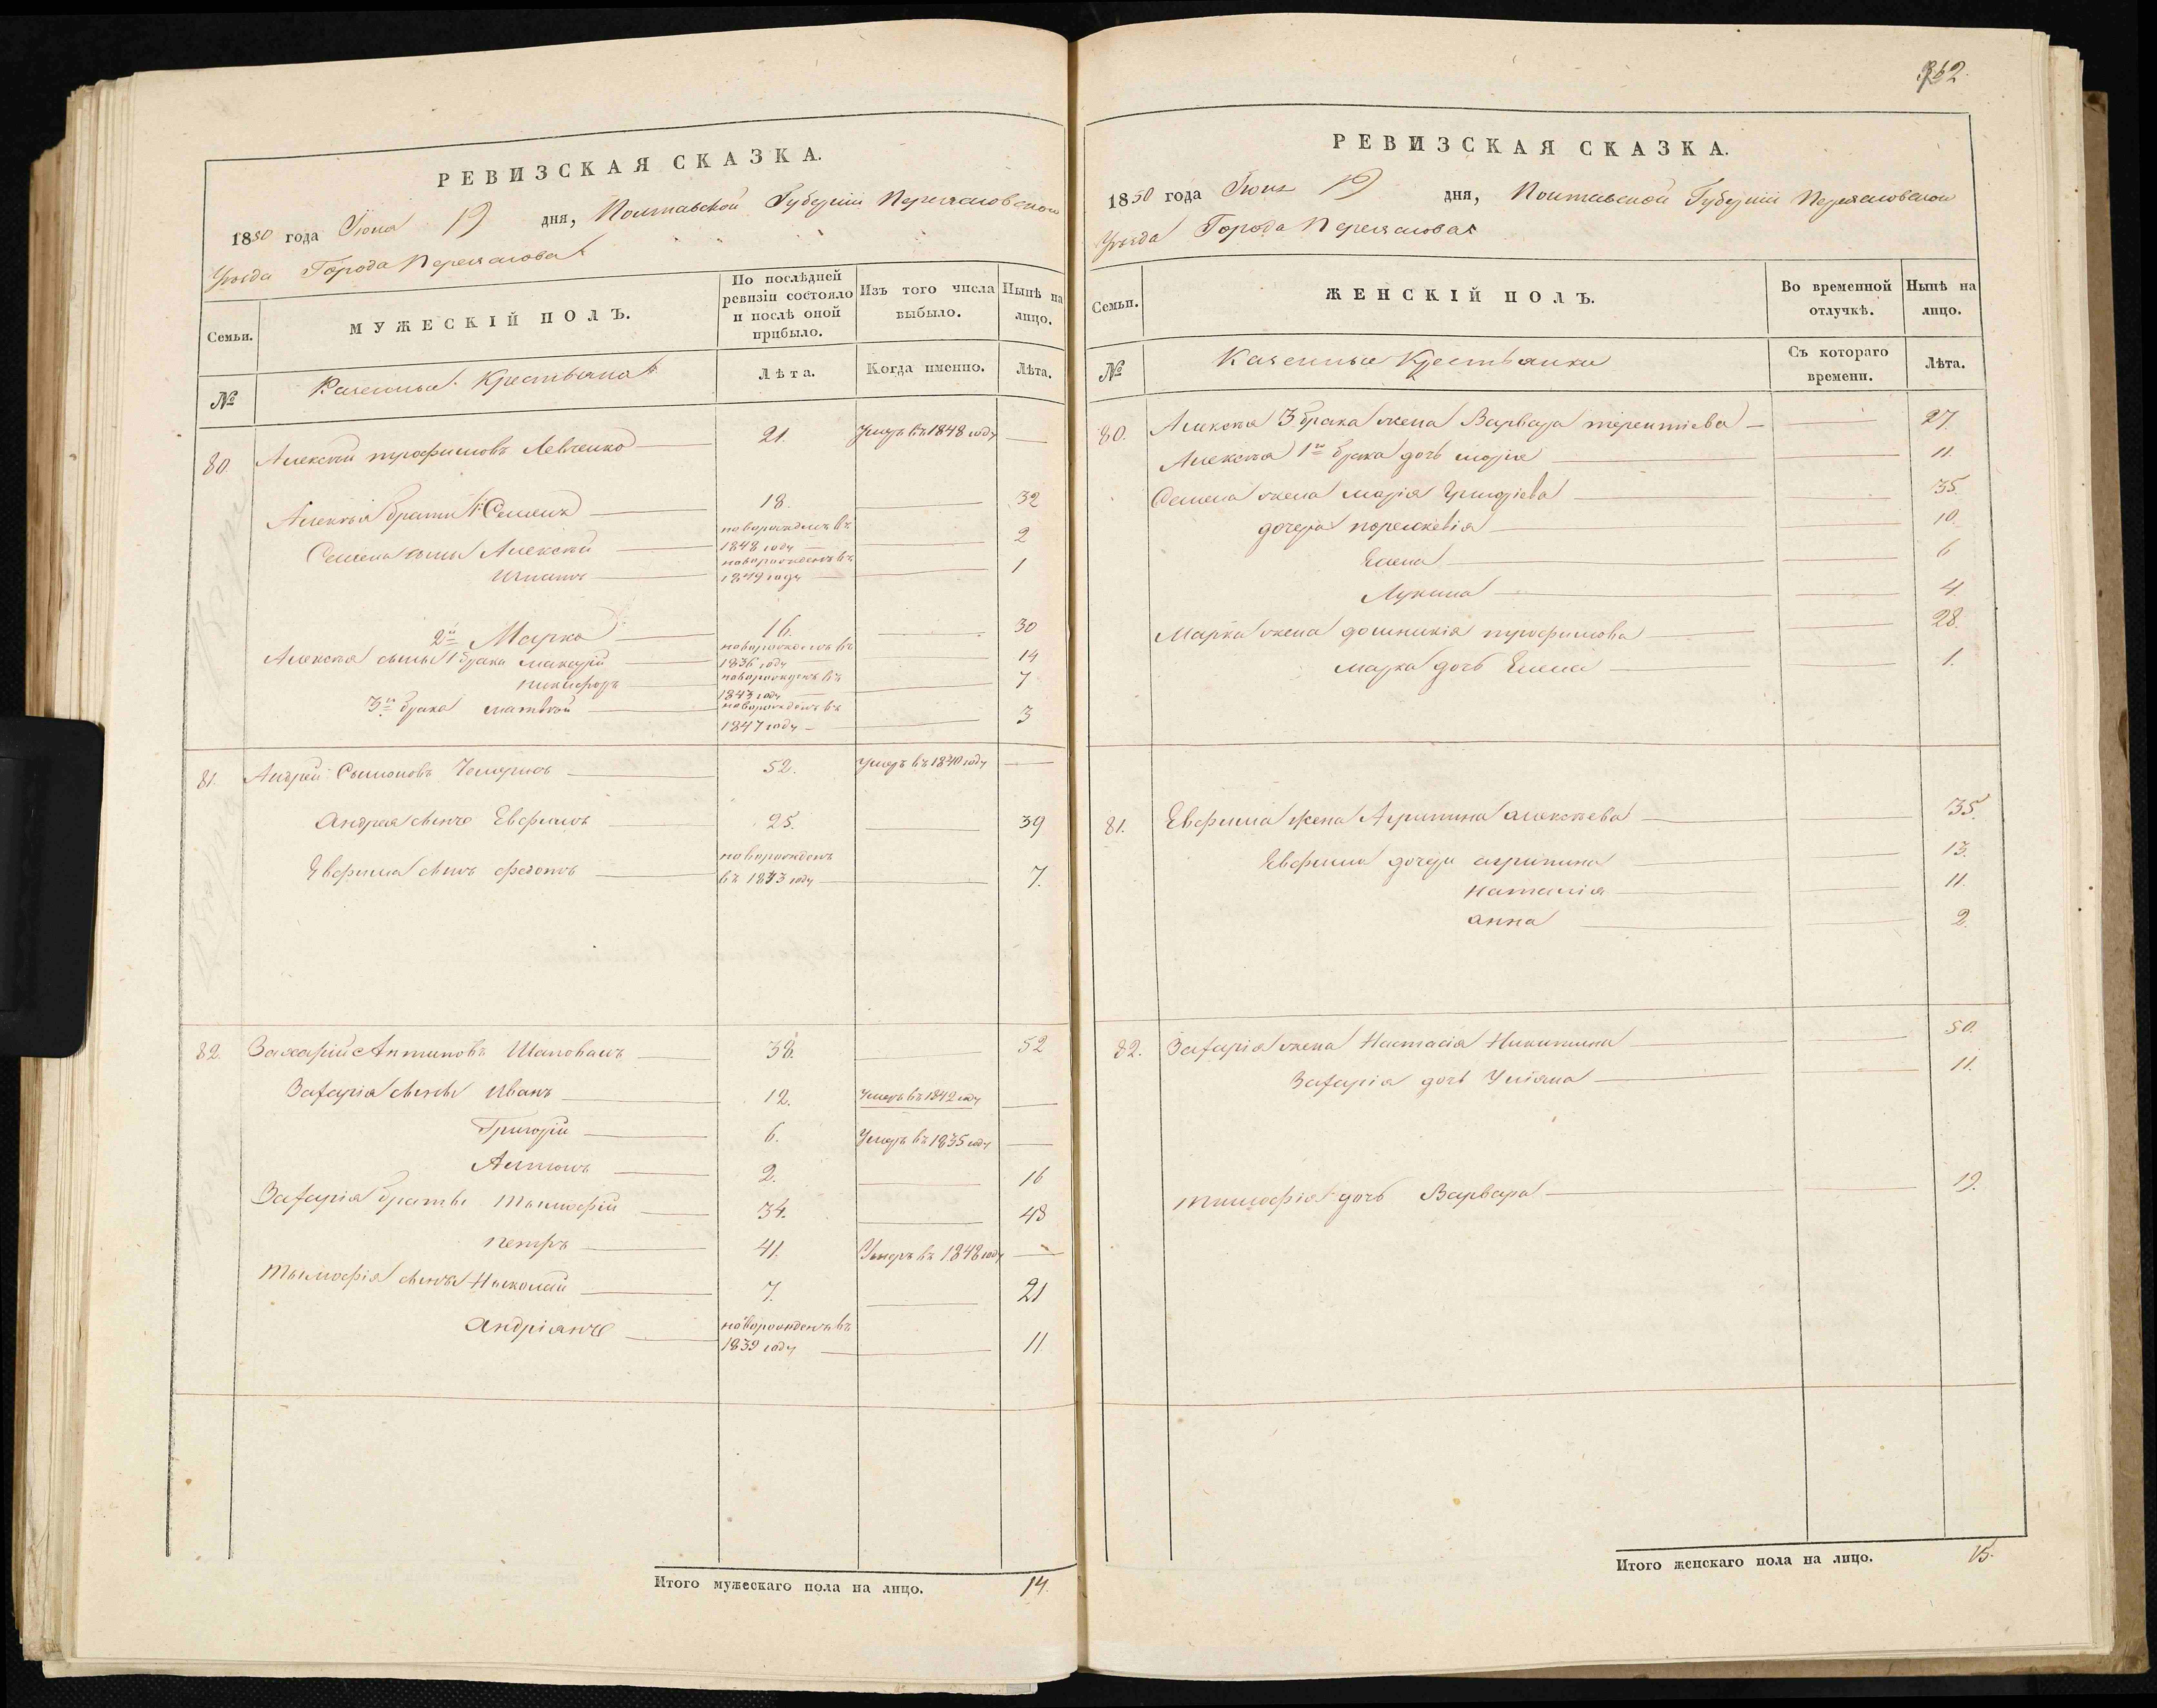 РЕВИЗСКАЯ СКАЗКА.
1850 года Июня 19 дня, Полтавской Губернии Переяславскаго
Уезда Города Переяслова
Семьи.
МУЖЕСКІЙ ПОЛЪ.
По послѣдней ревизіи состояло и послѣ оной прибыло.
Изъ того числа выбыло.
Нынѣ на лицо.
№
Казенные Крестьяна
Лѣта.
Когда именно.
Лѣта.
80. Алексѣй трофимовъ Левченко 21. Умеръ въ 1848 году
Алексѣя братья 1й Семенъ 18. 32
Семена сыны Алексѣй новорожденъ въ 1848 году 2
Игнатъ новорожденъ въ 1849 году 1
2й Марко 16. 30
Алексѣя сыны 1 брака макарій новорожденъ въ 1836 году 14
никифоръ новорожденъ въ 1843 году 7
3го брака матвѣй новорожденъ въ 1847 году 3
81. Андрей Сымоновъ Чемерисъ 52. Умеръ въ 1840 году
Андрея сынъ Евфимъ 25. 39
Евфима сынъ федотъ новорожденъ въ 1843 году 7.
82. Захарій Антиповъ Шаповалъ 38. 52
Захарія сыны Иванъ 12. Умеръ въ 1842 году
Григорій 6. Умеръ въ 1835 году
Антонъ 2. 16
Захарія братья Тымофій 34. 48
петръ 41. Умеръ въ 1848 году
Тымофія сыны Николай 7. 21
Андріянъ новорожденъ въ 1839 году 11
Итого мужескаго пола на лицо. 14.
352.
РЕВИЗСКАЯ СКАЗКА.
1850 года Июня 19 дня, Полтавской Губерніи Переясловскаго
Уезда Города Переяслова
Семьи.
ЖЕНСКІЙ ПОЛЪ.
Во временной отлучкѣ.
Нынѣ на лицо.
№
Казенные Крестьянки
Съ котораго времени.
Лѣта.
80. Алексѣя 3 брака жена Варвара терентіева 27.
Алексѣя 1го брака дочь марія 11.
Семена жена марія Григоріева 35.
дочери порискевія 10.
Елена 6
Лукина 4.
Марка жена домникія трофимова 28.
марка дочь Елена 1.
81. Евфима жена Агрипина алексѣева 35.
Евфима дочери агрипина 13.
наталия 11.
анна 2.
82. Захарія жена Настасія Никитина 50.
Захарія дочь Уліяна 11.
тимофія дочь Варвара 19.
Итого женскаго пола на лицо. 15.